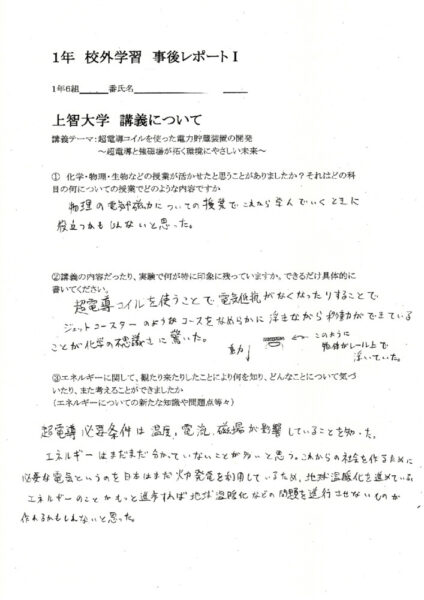 1年 校外学習 事後レポートⅠ
1年6組 番氏名
上智大学 講義について
講義テーマ:超電導コイルを使った電力貯蔵装置の開発
～超電導と強磁場が拓く環境にやさしい未来～
① 化学・物理・生物などの授業が活かせたと思うことがありましたか?それはどの科
目の何についての授業でどのような内容ですか
物理の電気や磁力についての授業でこれから学んでいくときに
役立つかもしれないと思った。
②講義の内容だったり、実験で何が特に印象に残っていますか。できるだけ具体的に
書いてください。
超電導コイルを使うことで電気抵抗がなくなったりすることで
ジェットコースターのようなコースをなめらかに浮きながら移動ができている
ことが化学の不思議さに驚いた。
重力↓ ← このように
物体がレール上で
浮いていた。
③エネルギーに関して、観たり来たりしたことにより何を知り、どんなことについて気づ
いたり、また考えることができましたか
(エネルギーについての新たな知識や問題点等々)
超電導 必要条件は 温度, 電流, 磁場が影響していることを知った。
エネルギーはまだまだ分かっていないことが多いと思う。これからの社会を作るために
必要な電気というのを日本はまだ火力発電を利用しているため、地球温暖化を進めている。
エネルギーのことがもっと進歩すれば地球温暖化などの問題を進行させないものが
作れるかもしれないと思った。